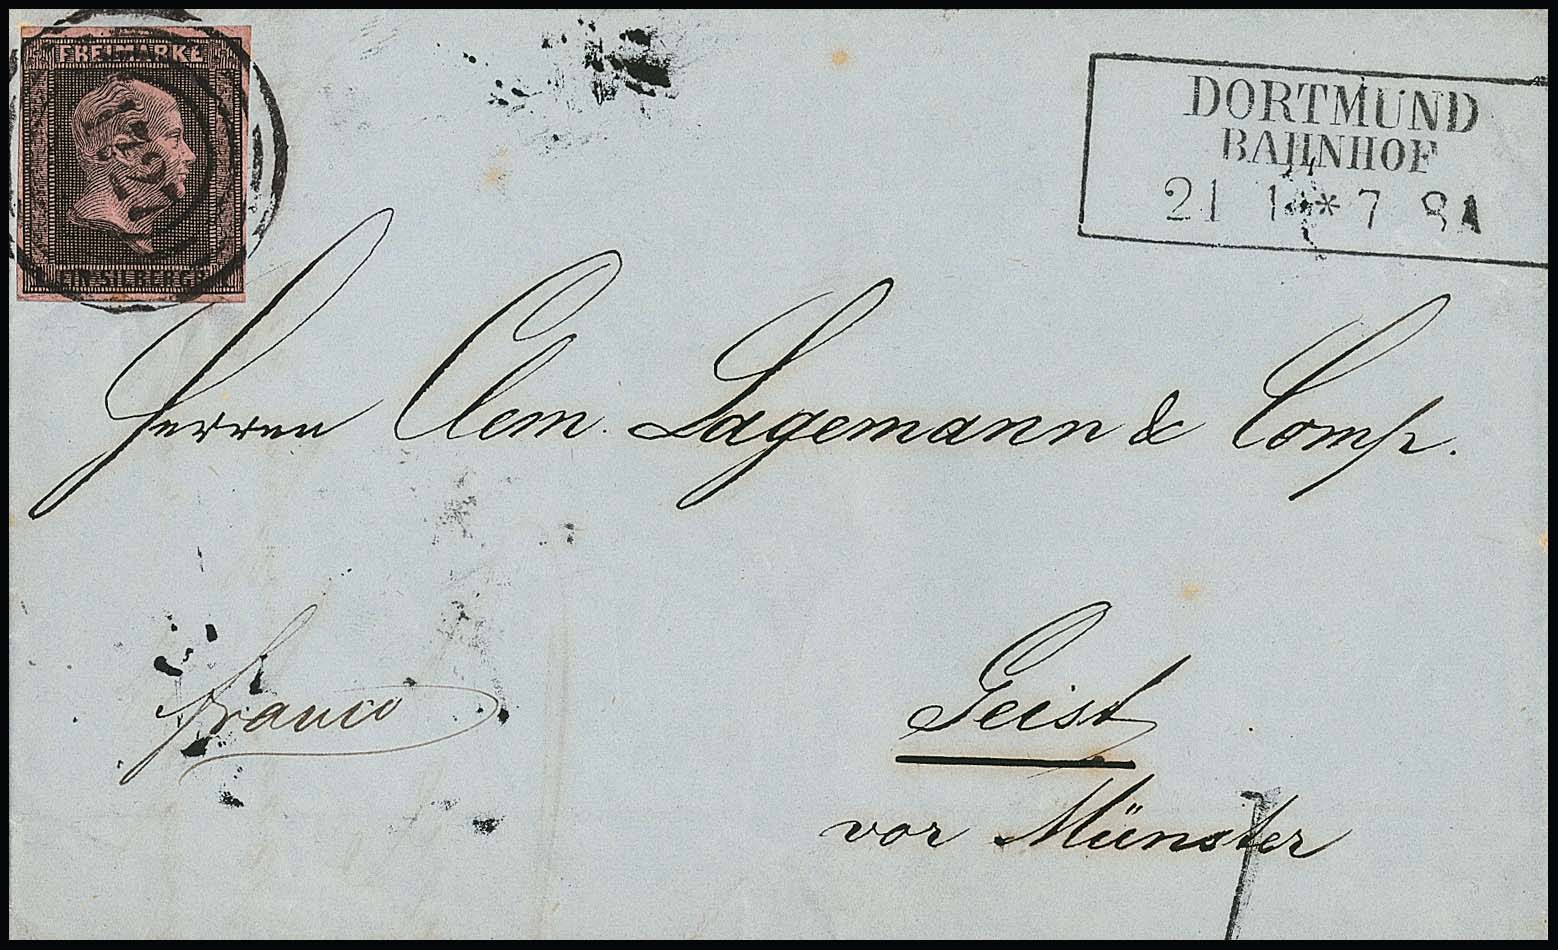 FREIMARKE
EIN SILBERGR.
DORTMUND
BAHNHOF
21 1 * 7 8
Herren Clem. Lagemann & Comp.
franco
Geist
vor Münster
1